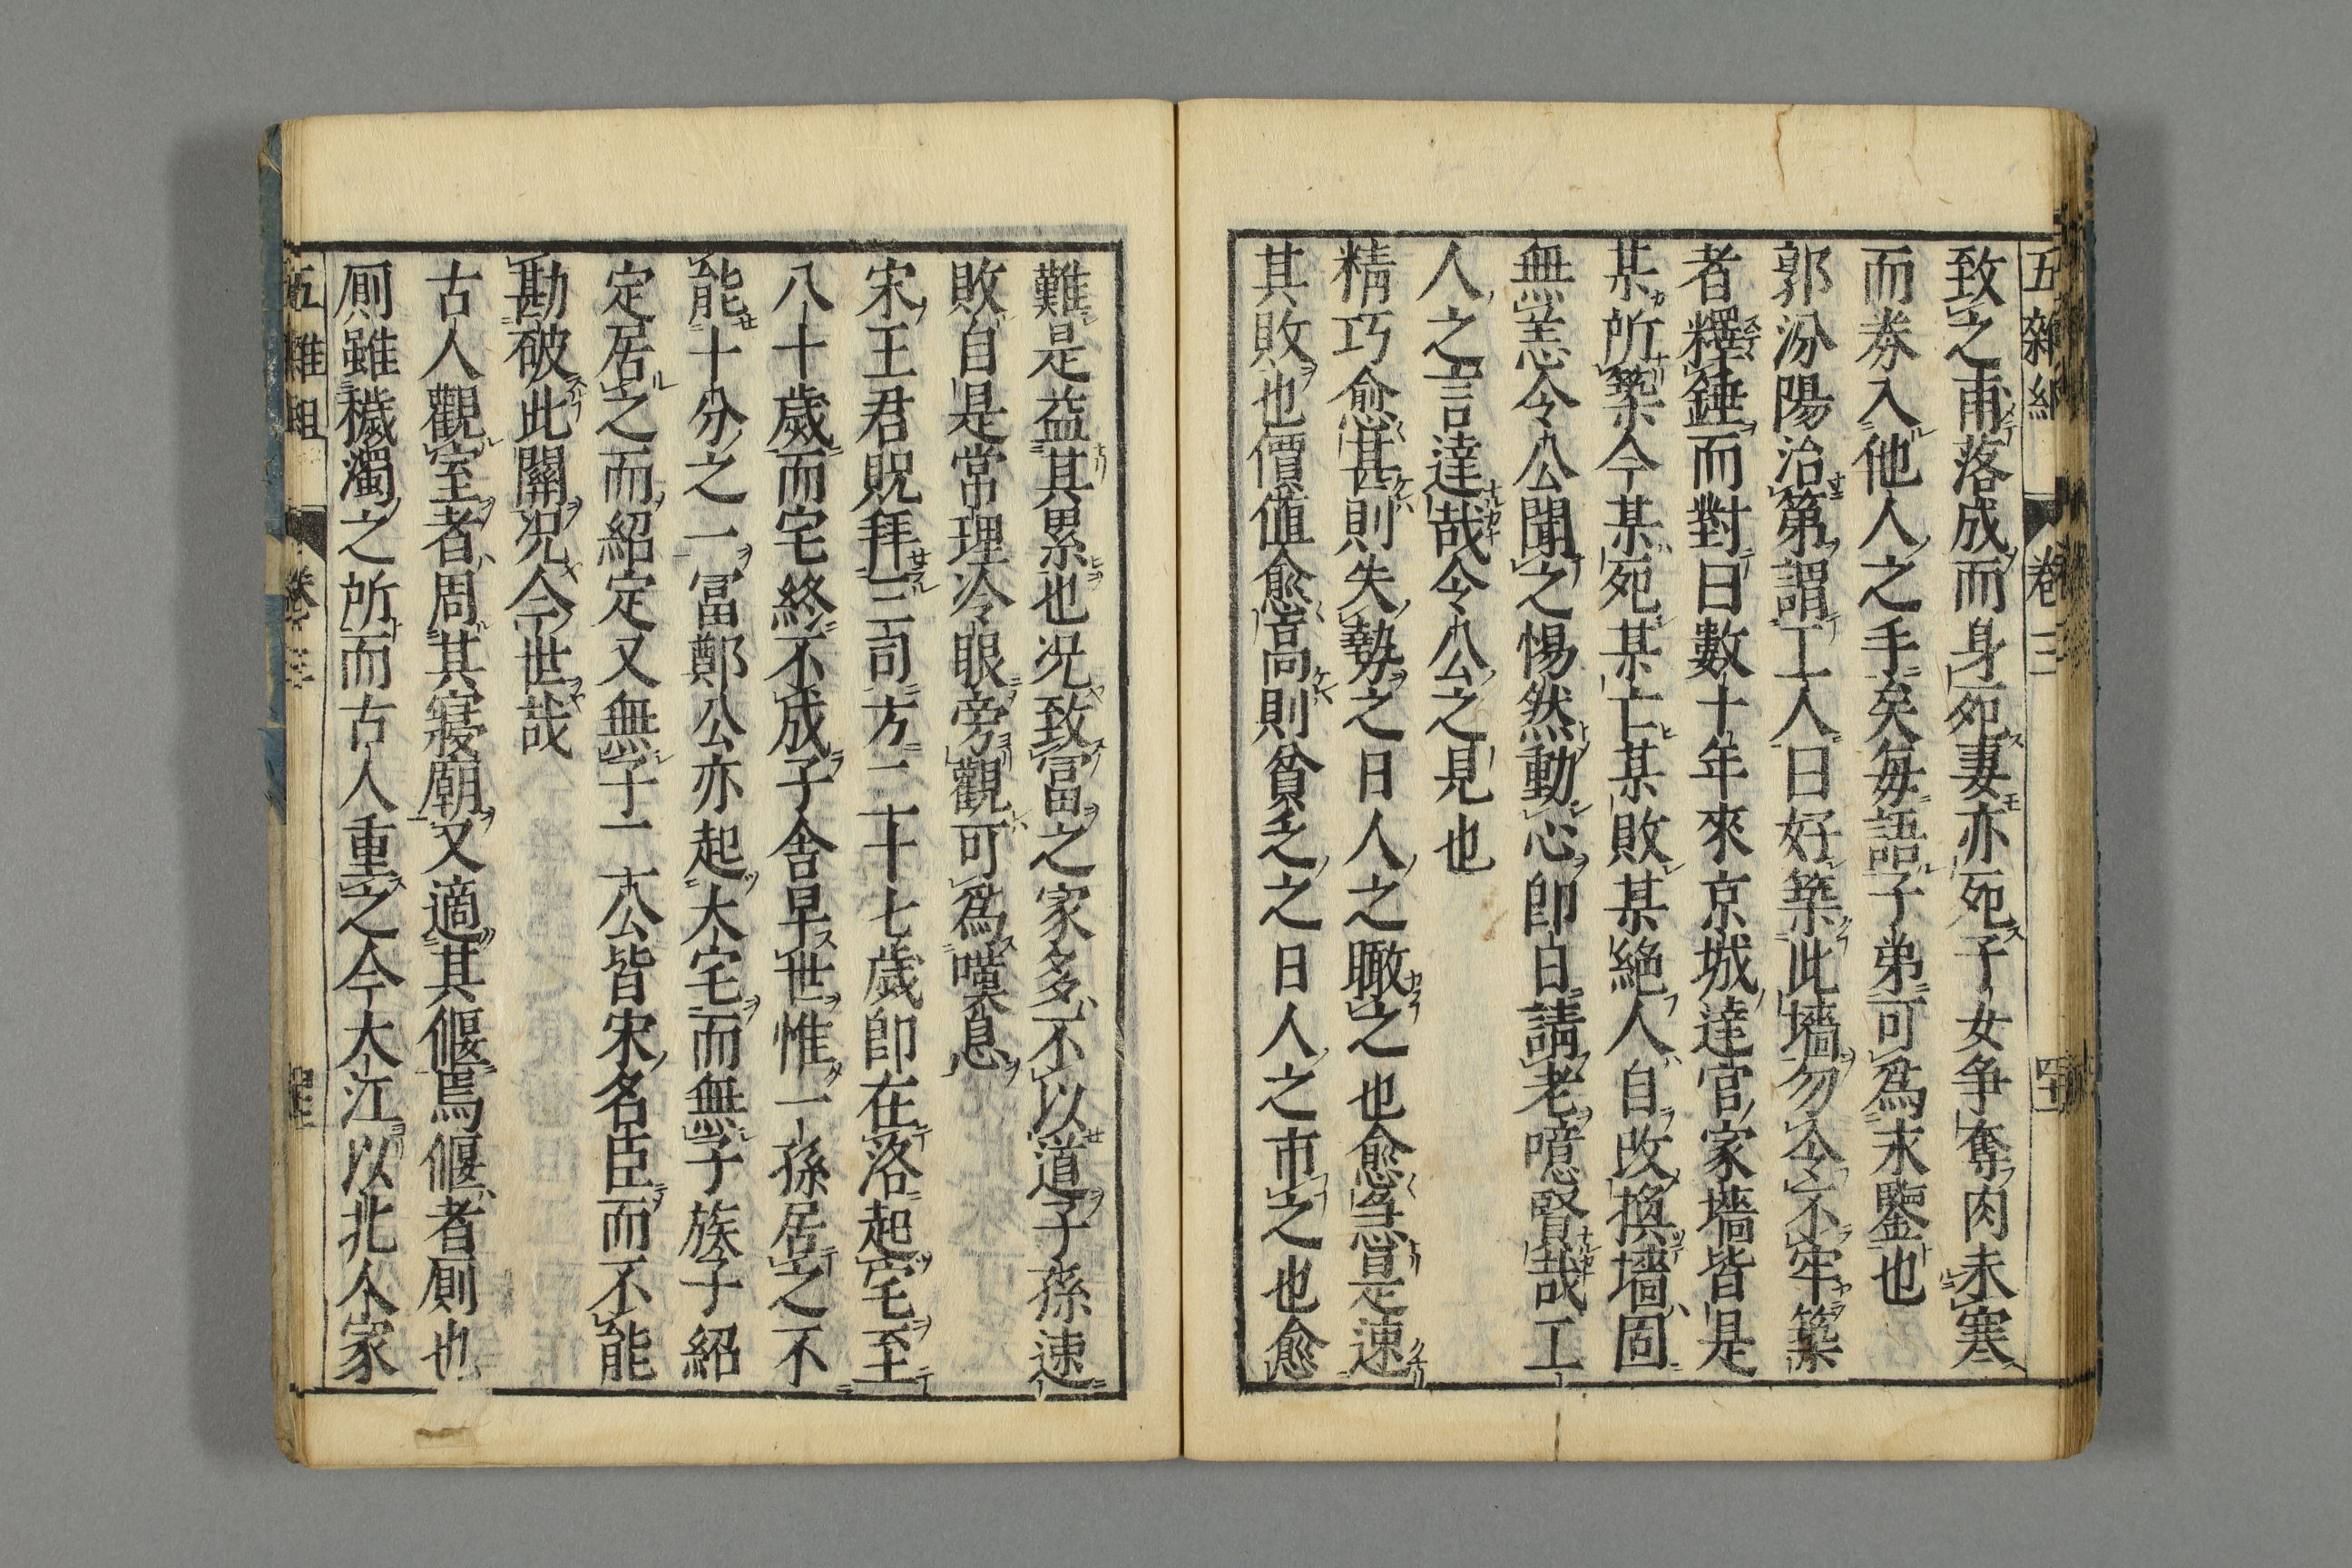 五雜組 卷三
致之甫落成而身死妻亦死子女爭奪肉未寒
而券入他人之手矣每語子弟可爲永鑒也
郭汾陽治第謂工人曰好築此墻勿令不牢築
者釋錘而對曰數十年來京城達官家墻皆是
某所築今某死某亡某敗某絕人自改換墻固
無恙令公聞之惕然動心卽日請老噫賢哉工
人之言達哉令公之見也
精巧愈甚則失勢之日人之瞰之也愈急是速
其敗也價值愈高則貧乏之日人之市之也愈
難是益其累也况致富之家多不以道子孫速
敗自是常理冷眼旁觀可爲嘆息
宋王君貺拜三司方二十七歲卽在落起宅至
八十歲而宅終不成子舍早世惟一孫居之不
能十分之一富鄭公亦起大宅而無子族子紹
定居之而紹定又無子二公皆宋名臣而不能
勘破此關况今世哉
古人觀室者周其寢廟又適其偃焉偃者厠也
厠雖穢濁之所而古人重之今大江以北人家
五雜組 卷三